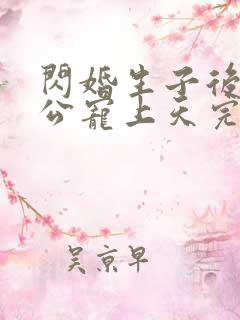 閃婚生子後
公寵上天完
吴京早